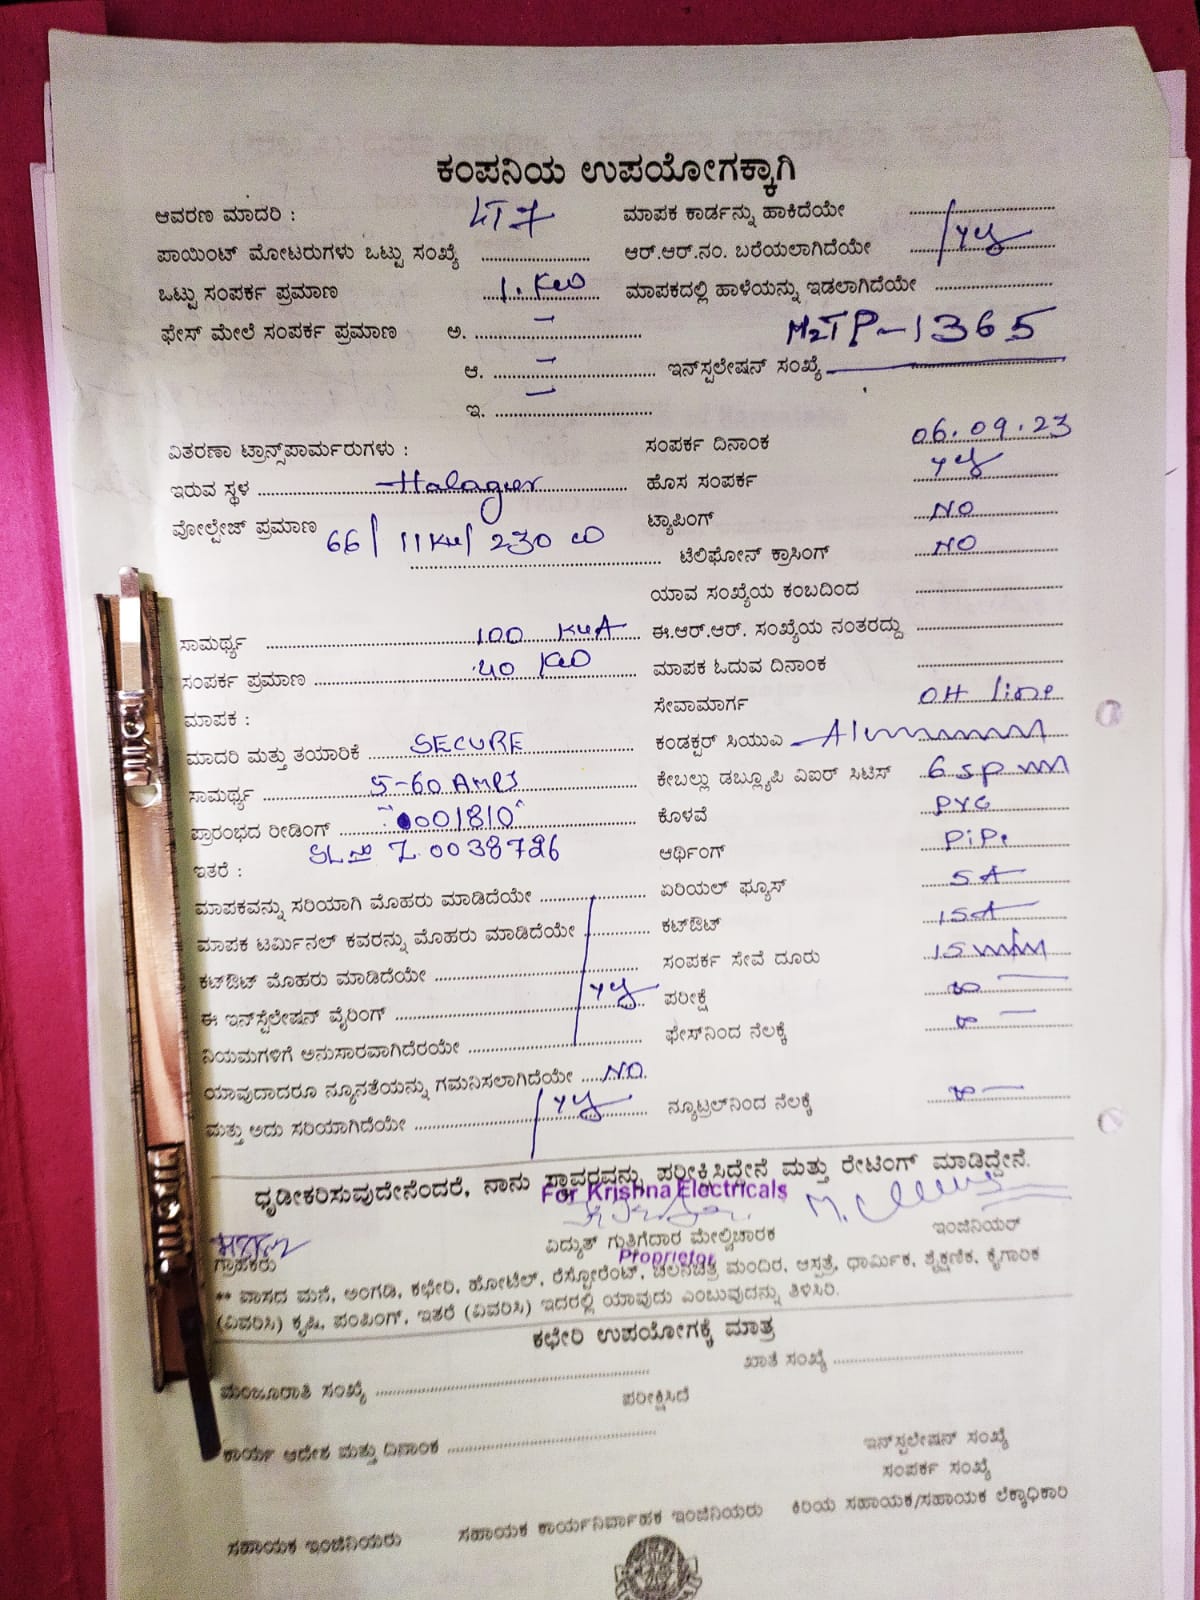 ಕಂಪನಿಯ ಉಪಯೋಗಕ್ಕಾಗಿ
ಆವರಣ ಮಾದರಿ : LT7 ಮಾಪಕ ಕಾರ್ಡನ್ನು ಹಾಕಿದೆಯೇ
ಪಾಯಿಂಟ್ ಮೋಟರುಗಳು ಒಟ್ಟು ಸಂಖ್ಯೆ ಆರ್.ಆರ್.ನಂ. ಬರೆಯಲಾಗಿದೆಯೇ yes
ಒಟ್ಟು ಸಂಪರ್ಕ ಪ್ರಮಾಣ 1. KW ಮಾಪಕದಲ್ಲಿ ಹಾಳೆಯನ್ನು ಇಡಲಾಗಿದೆಯೇ
ಫೇಸ್ ಮೇಲೆ ಸಂಪರ್ಕ ಪ್ರಮಾಣ ಅ. – M2TP-1365
ಆ. – ಇನ್‌ಸ್ಟಲೇಷನ್ ಸಂಖ್ಯೆ
ಇ. –
ವಿತರಣಾ ಟ್ರಾನ್ಸ್‌ಪಾರ್ಮರುಗಳು : ಸಂಪರ್ಕ ದಿನಾಂಕ 06.09.23
ಇರುವ ಸ್ಥಳ Halagur ಹೊಸ ಸಂಪರ್ಕ yes
ವೋಲ್ಟೇಜ್ ಪ್ರಮಾಣ 66/11KV/230 ಟ್ಯಾಪಿಂಗ್ NO
ಟೆಲಿಫೋನ್ ಕ್ರಾಸಿಂಗ್ NO
ಯಾವ ಸಂಖ್ಯೆಯ ಕಂಬದಿಂದ
ಸಾಮರ್ಥ್ಯ 100 KVA ಈ.ಆರ್.ಆರ್. ಸಂಖ್ಯೆಯ ನಂತರದ್ದು
ಸಂಪರ್ಕ ಪ್ರಮಾಣ 40 KW ಮಾಪಕ ಓದುವ ದಿನಾಂಕ
ಮಾಪಕ : ಸೇವಾಮಾರ್ಗ OH line
ಮಾದರಿ ಮತ್ತು ತಯಾರಿಕೆ SECURE ಕಂಡಕ್ಟರ್ ಸಿಯುವಿ
ಸಾಮರ್ಥ್ಯ 5-60 AMPS ಕೇಬಲ್ಲು ಡಬ್ಲ್ಯೂಪಿ ವಿಐರ್ ಸಿಟಿಸ್
ಪ್ರಾರಂಭದ ರೀಡಿಂಗ್ 0001810 ಕೊಳವೆ PVC
ಇತರೆ : SL no Z.0038726 ಆರ್ಥಿಂಗ್ PiPe
ಮಾಪಕವನ್ನು ಸರಿಯಾಗಿ ಮೊಹರು ಮಾಡಿದೆಯೇ ಏರಿಯಲ್ ಫ್ಯೂಸ್ 5A
ಮಾಪಕ ಟರ್ಮಿನಲ್ ಕವರನ್ನು ಮೊಹರು ಮಾಡಿದೆಯೇ ಕಟ್‌ಔಟ್ 15A
ಕಟ್‌ಔಟ್ ಮೊಹರು ಮಾಡಿದೆಯೇ ಸಂಪರ್ಕ ಸೇವೆ ದೂರು
ಈ ಇನ್‌ಸ್ಟಲೇಷನ್ ವೈರಿಂಗ್ yes ಪರೀಕ್ಷೆ ∞ –
ನಿಯಮಗಳಿಗೆ ಅನುಸಾರವಾಗಿದೆರಯೇ ಫೇಸ್‌ನಿಂದ ನೆಲಕ್ಕೆ ∞ –
ಯಾವುದಾದರೂ ನ್ಯೂನತೆಯನ್ನು ಗಮನಿಸಲಾಗಿದೆಯೇ NO
ಮತ್ತು ಅದು ಸರಿಯಾಗಿದೆಯೇ yes ನ್ಯೂಟ್ರಲ್‌ನಿಂದ ನೆಲಕ್ಕೆ ∞ –
ಧೃಡೀಕರಿಸುವುದೇನೆಂದರೆ, ನಾನು ಸ್ಥಾವರವನ್ನು ಪರೀಕ್ಷಿಸಿದ್ದೇನೆ ಮತ್ತು ರೇಟಿಂಗ್ ಮಾಡಿದ್ದೇನೆ.
For Krishna Electricals
ಗ್ರಾಹಕರು ವಿದ್ಯುತ್ ಗುತ್ತಿಗೆದಾರ ಮೇಲ್ವಿಚಾರಕ ಇಂಜಿನಿಯರ್
Proprietor
** ವಾಸದ ಮನೆ, ಅಂಗಡಿ, ಕಛೇರಿ, ಹೋಟೆಲ್, ರೆಸ್ಟೋರೆಂಟ್, ಚಲನಚಿತ್ರ ಮಂದಿರ, ಆಸ್ಪತ್ರೆ, ಧಾರ್ಮಿಕ, ಶೈಕ್ಷಣಿಕ, ಕೈಗಾರಿಕ
(ವಿವರಿಸಿ) ಕೃಷಿ, ಪಂಪಿಂಗ್, ಇತರೆ (ವಿವರಿಸಿ) ಇದರಲ್ಲಿ ಯಾವುದು ಎಂಬುವುದನ್ನು ತಿಳಿಸಿರಿ.
ಕಛೇರಿ ಉಪಯೋಗಕ್ಕೆ ಮಾತ್ರ
ಮಂಜೂರಾತಿ ಸಂಖ್ಯೆ ಖಾತೆ ಸಂಖ್ಯೆ
ಪರೀಕ್ಷಿಸಿದೆ
ಕಾರ್ಯ ಆದೇಶ ಮತ್ತು ದಿನಾಂಕ ಇನ್‌ಸ್ಟಲೇಷನ್ ಸಂಖ್ಯೆ
ಸಂಪರ್ಕ ಸಂಖ್ಯೆ
ಸಹಾಯಕ ಇಂಜಿನಿಯರು ಸಹಾಯಕ ಕಾರ್ಯನಿರ್ವಾಹಕ ಇಂಜಿನಿಯರು ಕಿರಿಯ ಸಹಾಯಕ/ಸಹಾಯಕ ಲೆಕ್ಕಾಧಿಕಾರಿ